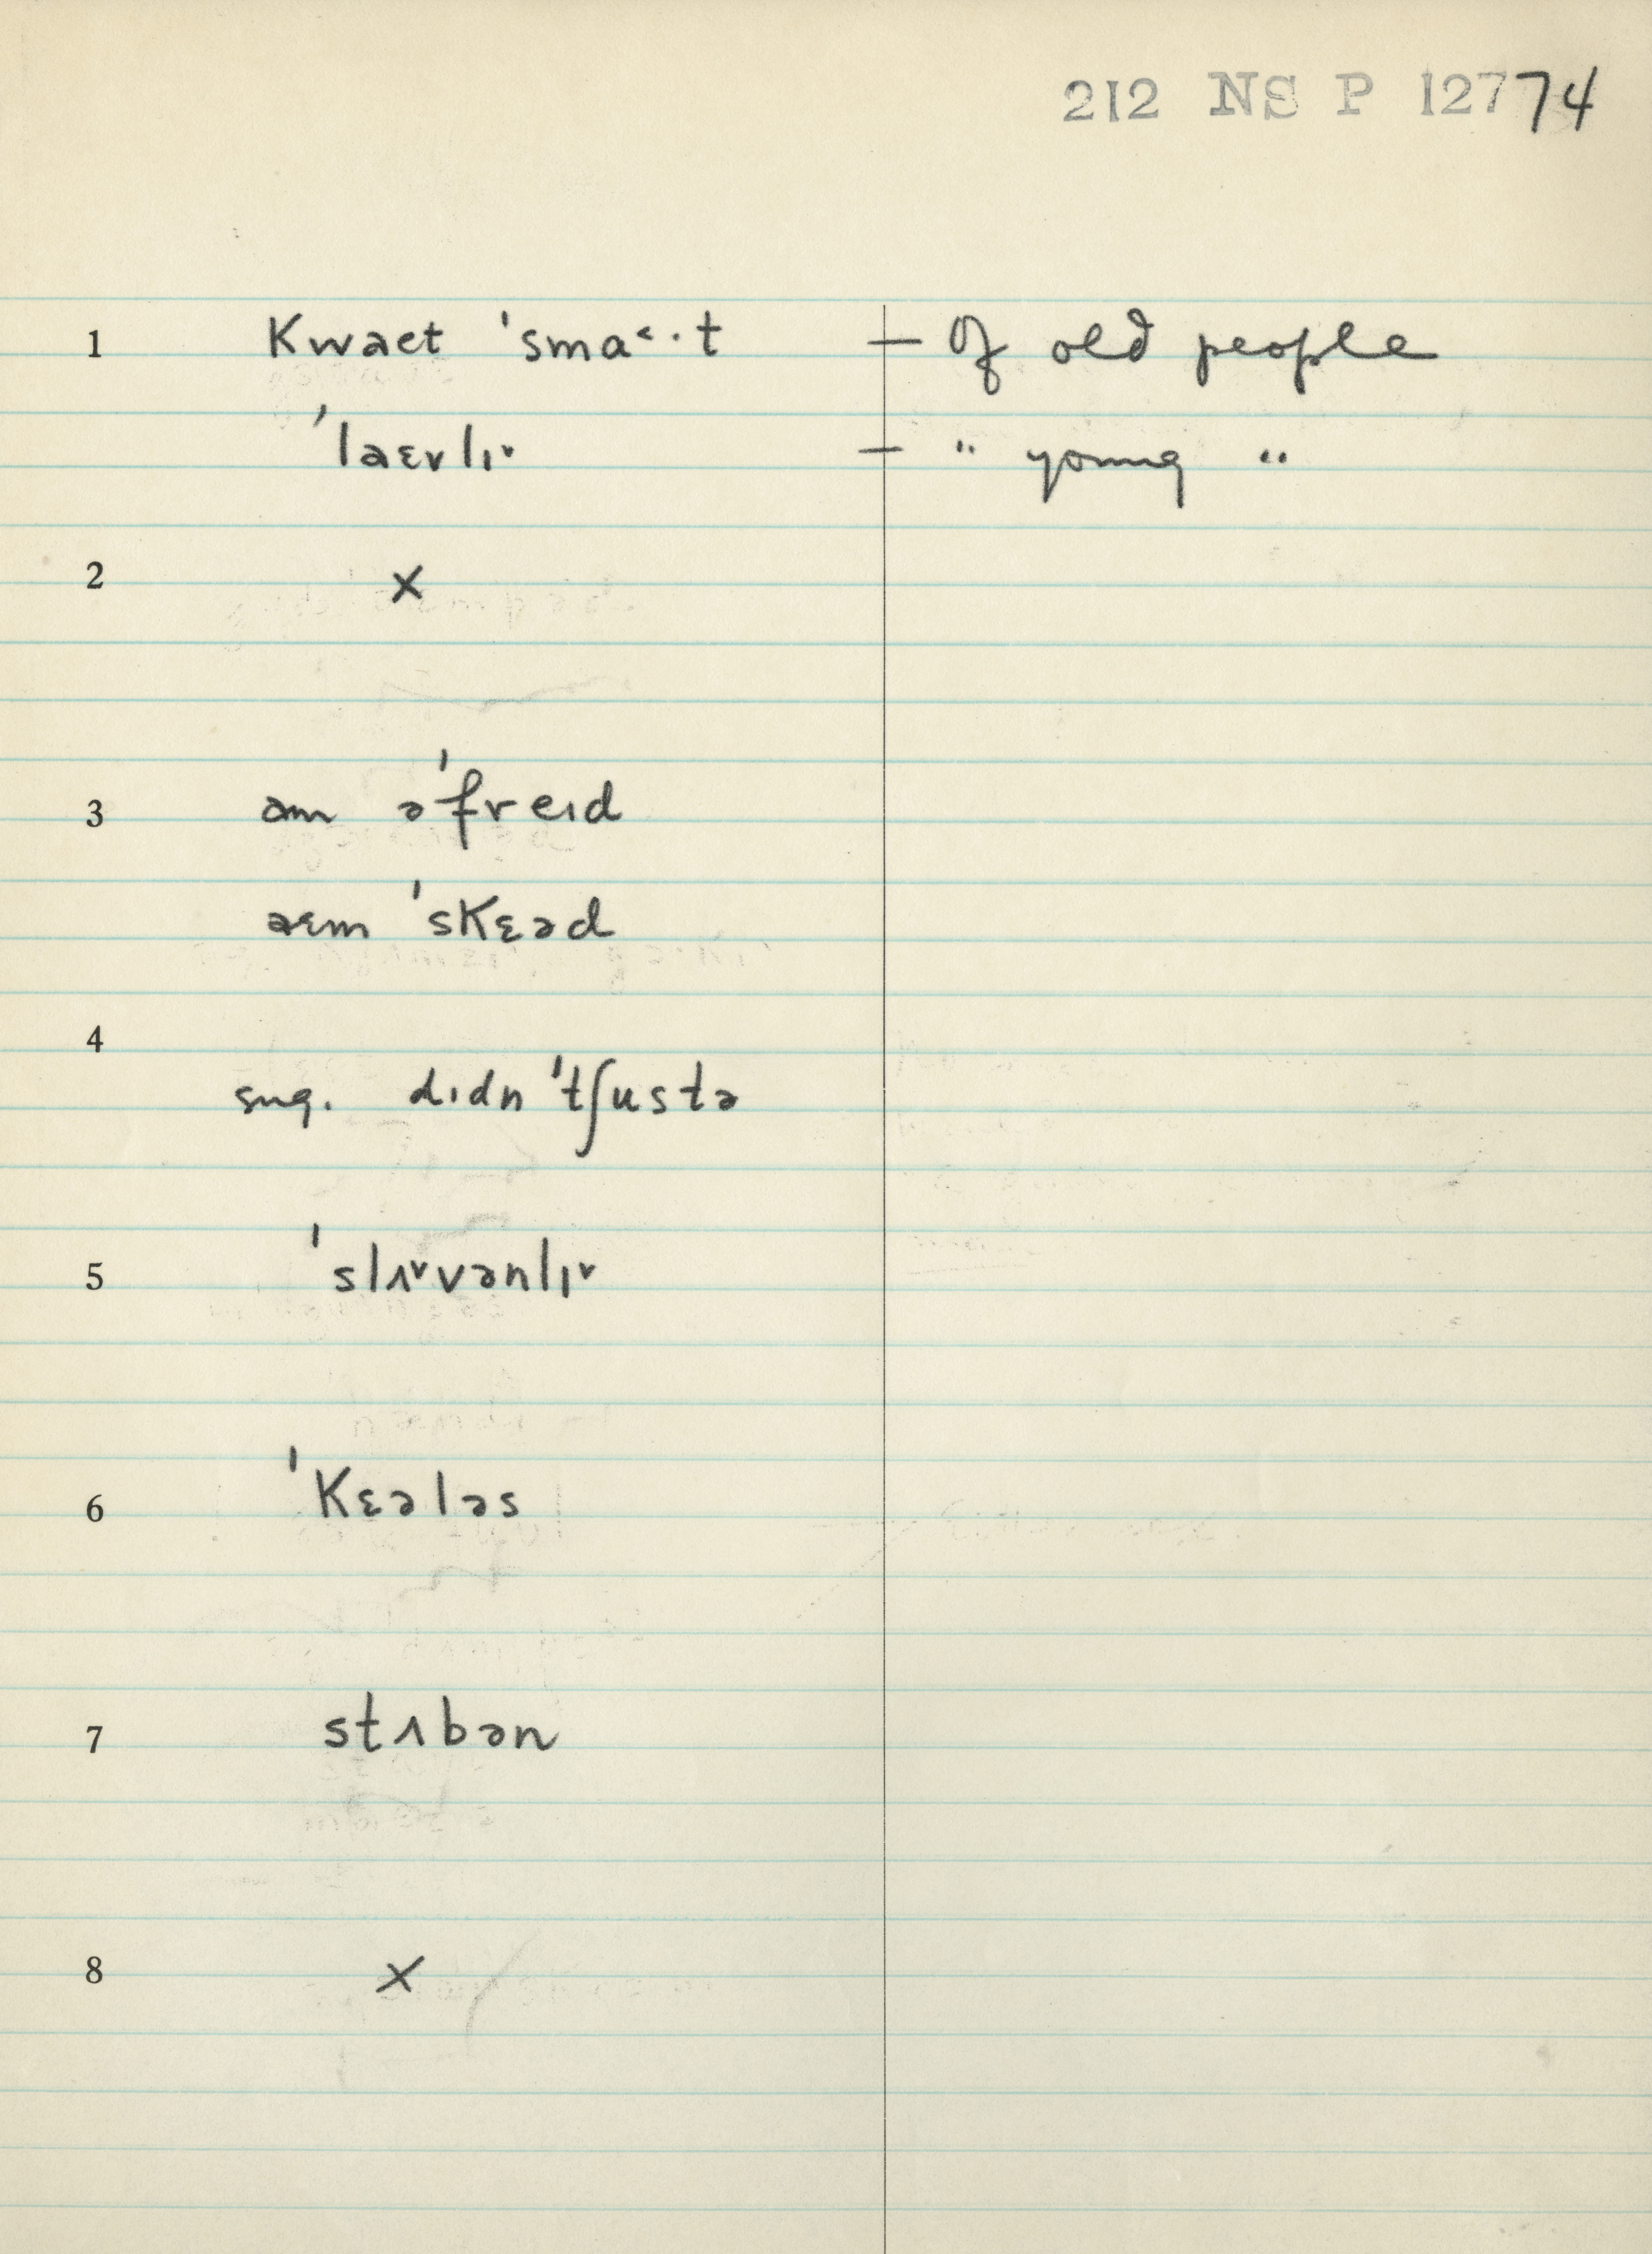 212 NS P 12774
1 kwaɛt ˈsma˂·t — Of old people
ˈlaɛvlɪ˅ — " young "
2 ×
3 əm əˈfreɪd
aɛm ˈskɛəd
4
sug. dɪdn ˈtʃustə
5 ˈslʌ˅vənlɪ˅
6 ˈkɛələs
7 stʌbən
8 ×